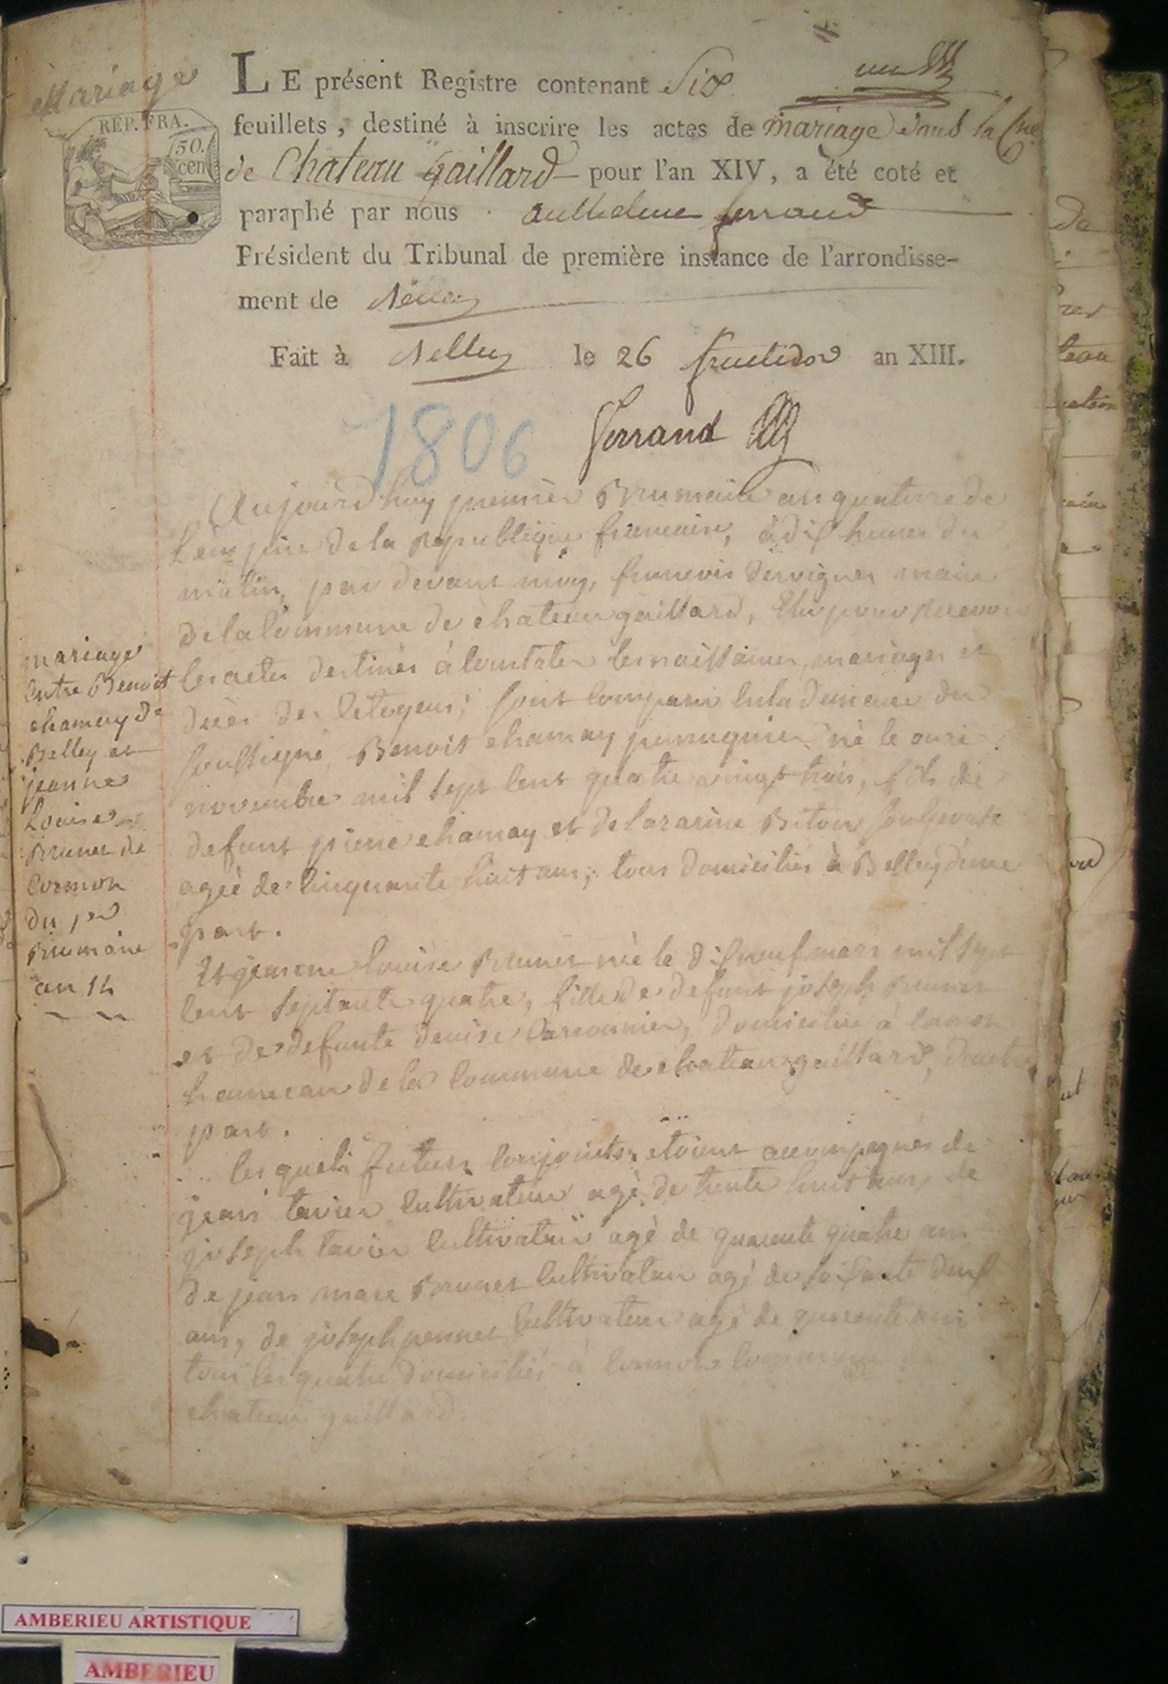 Mariage
REP. FRA.
50.
cen
LE présent Registre contenant Six
feuillets, destiné à inscrire les actes de mariage dans la Cne
de Chateau gaillard pour l'an XIV, a été coté et
paraphé par nous anthelme ferrand
Président du Tribunal de première instance de l'arrondisse-
ment de
Fait à Belley le 26 fructidor an XIII.
1806
Ferrand
Aujourd'huy premier Brumaire an quatorze de
L'empire de la Republique francaise, à dix heures du
matin, par devant moy, francois Dervigner maire
de la Commune de chateau gaillard, Elu pour recevoir
les actes destinés à Constater les naissances, mariages et
décès des Citoyens; sont comparu en la demeure du
soussigné, Benoit chamay perruquier né le onze
novembre mil sept cent quatre vingt trois, fils de
defunt pierre chamay et de lazarine Biton
agée de Cinquante huit ans, tous domiciliés à Belley d'une
part.
Et jeanne Louise Brunet née le dixneuf mars mil sept
Cent septante quatre, fille de defunt joseph Brunet
et de defunte denise, domiciliée à Cormon
hameau de la Commune de chateau gaillard, d'autre
part.
lesquels futurs Conjoints étoient accompagnés de
jean tavier Cultivateur agé de trente huit ans, de
joseph tavier Cultivateur agé de quarante quatre ans
de jean marc Brunet Cultivateur agé de soixante deux
ans, de joseph pennet Cultivateur agé de quarante ans
tous les quatre domiciliés à Cormon Commune
chateau gaillard.
mariage
Entre Benoit
chamay de
Belley et
jeanne
Louise
Brunet de
Cormon
du 1er
Brumaire
an 14
AMBERIEU ARTISTIQUE
AMBERIEU